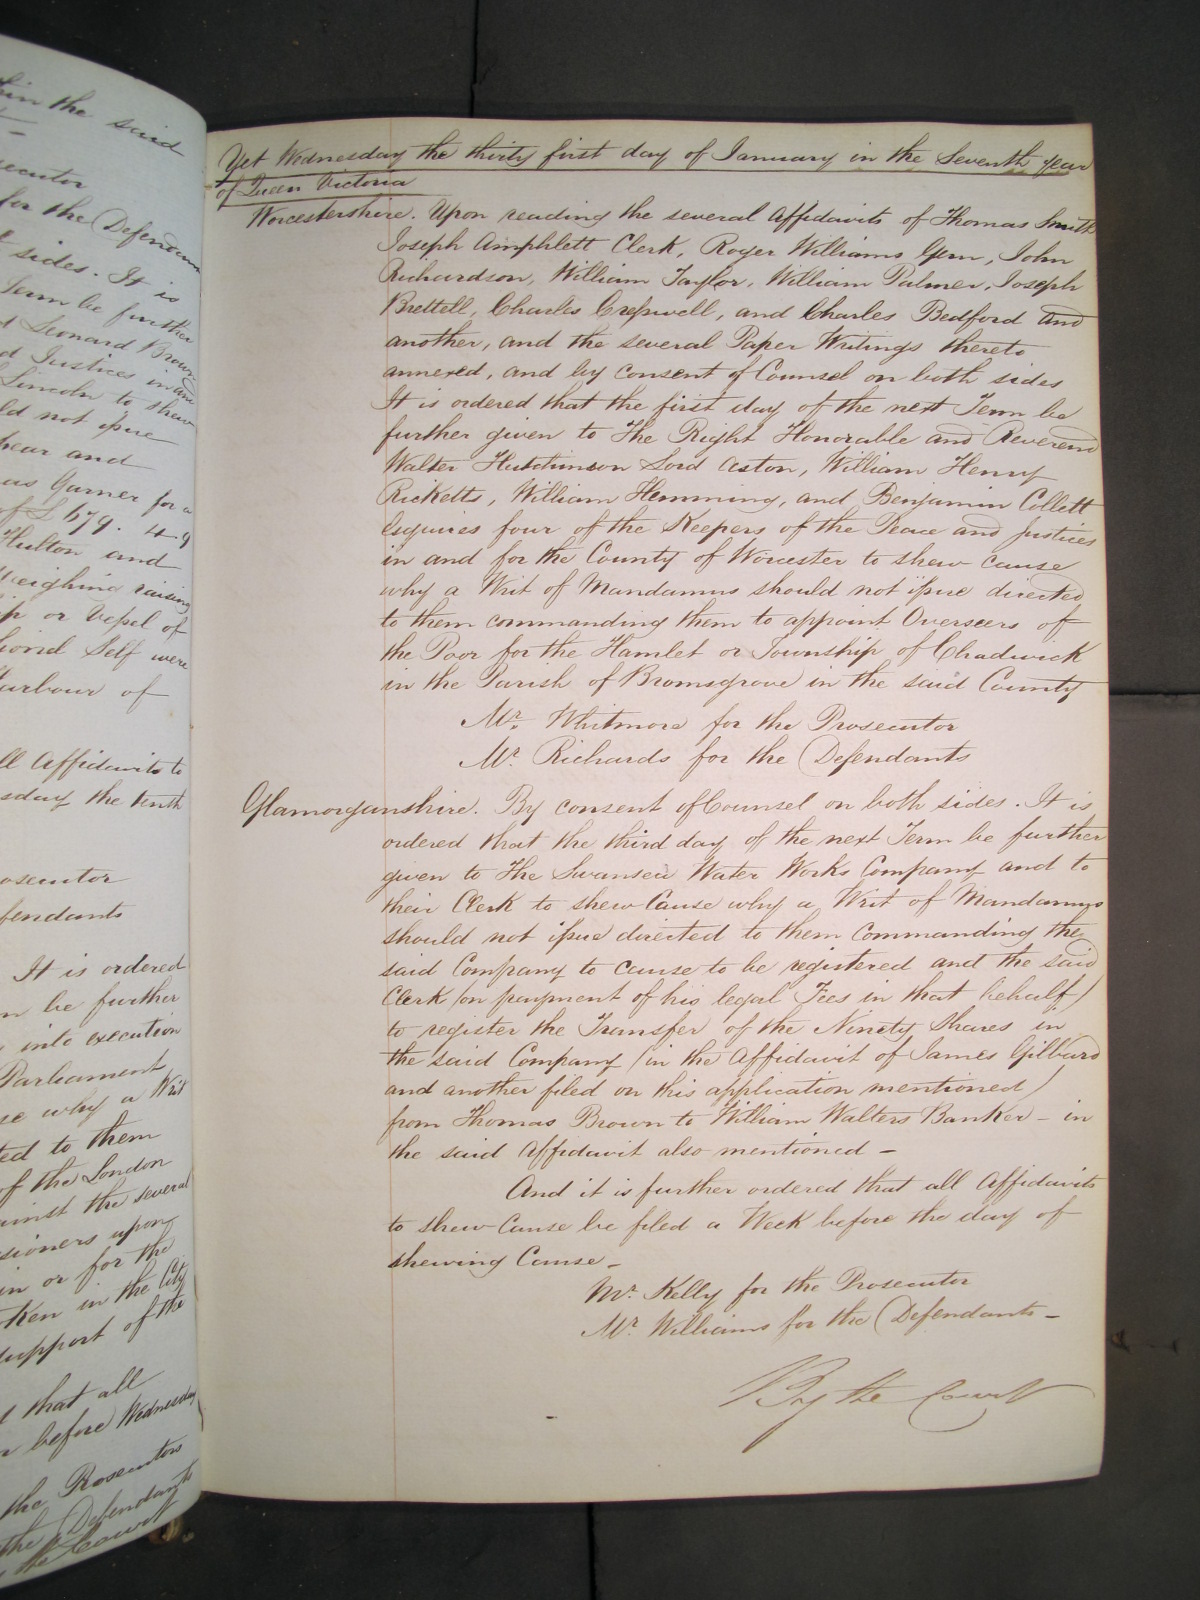 tin the said
ecutor
for the Defendants
sides. It is
Term be further
Leonard Brown
Justices in and
Lincoln to shew
ld not ifsue
hear and
as Garner for a
of £ 679. 4. 9
Hulton and
Weighing raising
ip or Vefsel of
tional Self were
Harbour of
ll Affidavits to
sday the tenth
osecutor
fendants
It is ordered
m be further
into execution
Parliament
se why a Writ
ted to them
of the London
ainst the several
sioners upon
in or for the
ken in the City
support of the
that all
before Wednesday
the Prosecutors
the Defendants
the Court
Yet Wednesday the thirty first day of January in the Seventh year
of Queen Victoria
Worcestershire. Upon reading the several Affidavits of Thomas Smith
Joseph Amphlett Clerk, Roger Williams Gem, John
Richardson, William Taylor, William Palmer, Joseph
Brettell, Charles Crefswell, and Charles Bedford and
another, and the several Paper Writings thereto
annexed, and by consent of Counsel on both sides
It is ordered that the first day of the next Term be
further given to The Right Honorable and Reverend
Walter Hutchinson Lord Aston, William Henry
Ricketts, William Hemming, and Benjamin Collett
Esquires four of the Keepers of the Peace and Justices
in and for the County of Worcester to shew cause
why a Writ of Mandamus should not ifsue directed
to them commanding them to appoint Overseers of
the Poor for the Hamlet or Township of Chadwick
in the Parish of Bromsgrove in the said County
Mr. Whitmore for the Prosecutor
Mr. Richards for the Defendants
Glamorganshire. By consent of Counsel on both sides. It is
ordered that the third day of the next Term be further
given to The Swansea Water Works Company and to
their Clerk to shew Cause why a Writ of Mandamus
should not ifsue directed to them Commanding the
said Company to cause to be registered and the said
Clerk (on payment of his legal Fees in that behalf)
to register the Transfer of the Ninety Shares in
the said Company (in the Affidavit of James Gilbard
and another filed on this application mentioned)
from Thomas Brown to William Walters Banker - in
the said Affidavit also mentioned -
And it is further ordered that all Affidavits
to shew Cause be filed a Week before the day of
shewing Cause -
Mr. Kelly for the Prosecutor
Mr. Williams for the Defendants -
By the Court